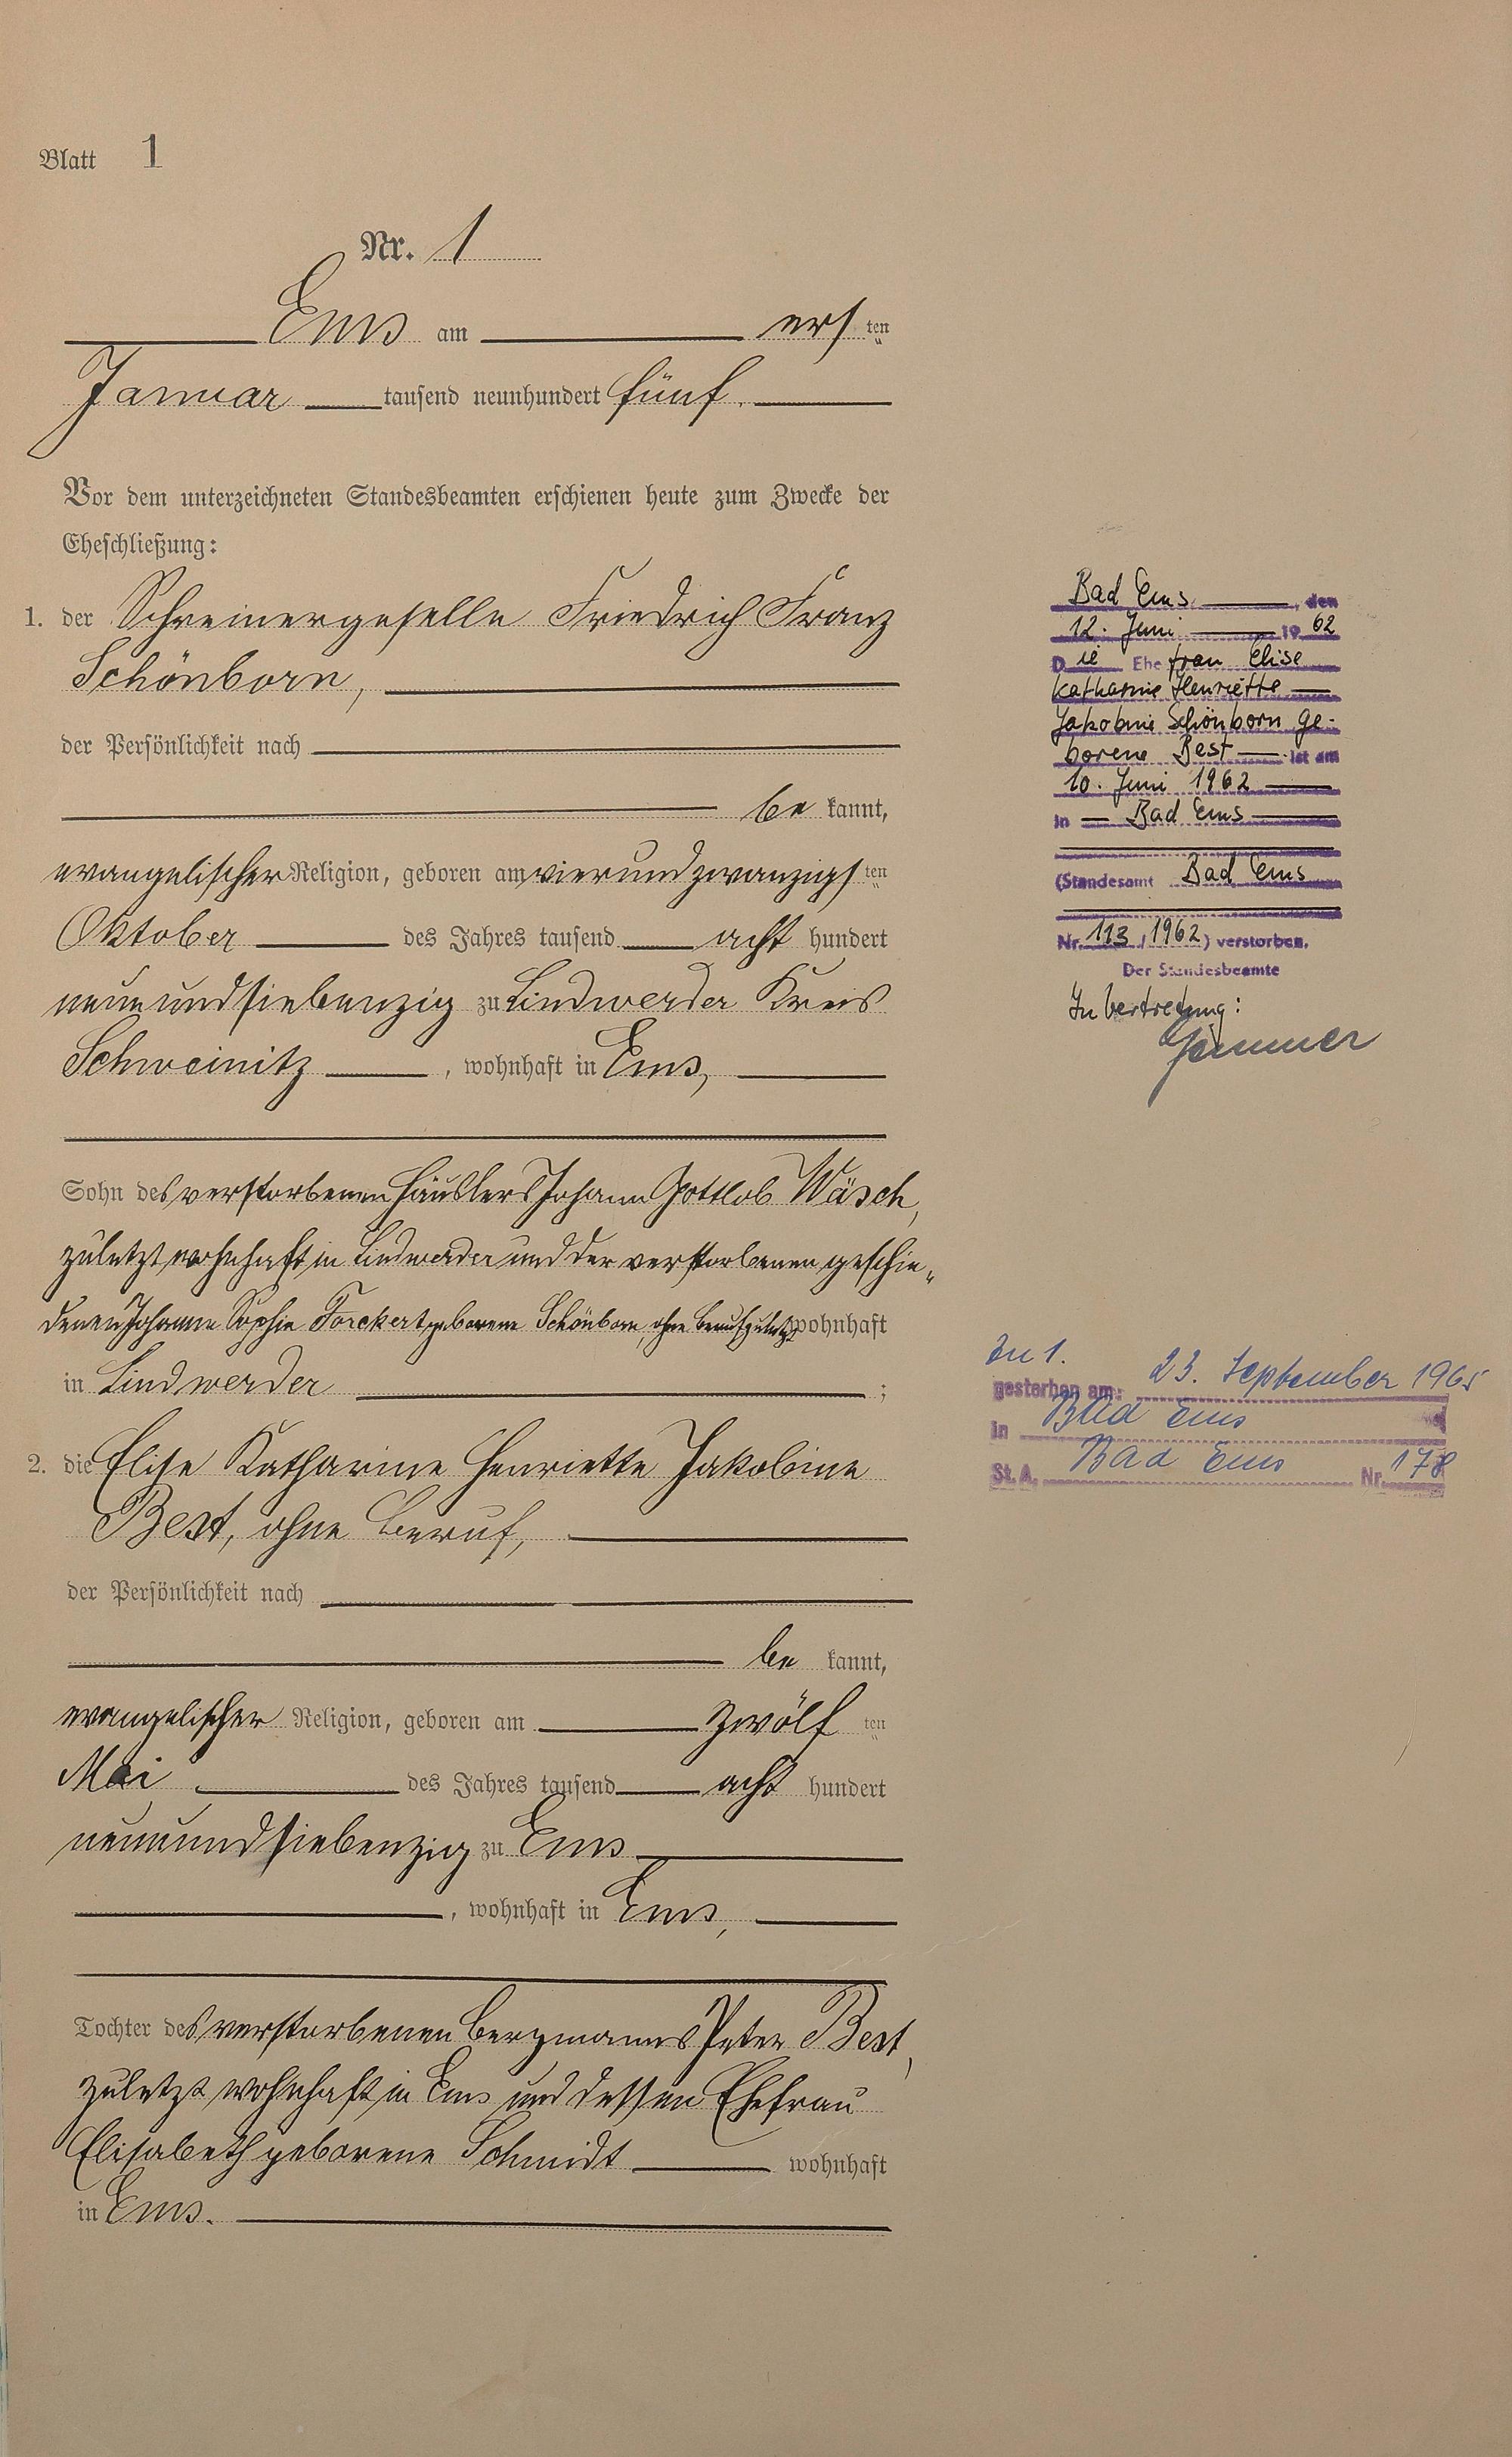 Blatt 1
Nr. 1
Ems am ersten
Januar tausend neunhundert fünf.
Vor dem unterzeichneten Standesbeamten erschienen heute zum Zwecke der
Eheschließung:
1. der Schreinergeselle Friedrich Franz
Schönborn,
der Persönlichkeit nach
be kannt,
evangelischer Religion, geboren am vierundzwanzigsten
Oktober des Jahres tausend acht hundert
neunundsiebenzig zu Lindwerder Kreis
Schweinitz, wohnhaft in Ems,
Sohn des verstorbenen Häuslers Johann Gottlob Wäsch,
zuletzt wohnhaft in Lindwerder und der verstorbenen geschie-
denen Johanne Sophie Forckert geborene Schönborn, ohne Beruf zuletzt wohnhaft
in Lindwerder;
2. die Elise Katharine Henriette Jakobine
Best, ohne Beruf,
der Persönlichkeit nach
be kannt,
evangelischer Religion, geboren am zwölften
Mai des Jahres tausend acht hundert
neunundsiebenzig zu Ems
, wohnhaft in Ems,
Tochter des verstorbenen Bergmanns Peter Best,
zuletzt wohnhaft in Ems und dessen Ehefrau
Elisabeth geborene Schmidt wohnhaft
in Ems.
Bad Ems, den
12. Juni 1962
Die Ehefrau Elise
Katharine Henriette
Jakobine Schönborn ge-
borene Best ist am
10. Juni 1962
in Bad Ems
(Standesamt Bad Ems
Nr. 113/1962) verstorben.
Der Standesbeamte
In Vertretung:
Zu 1.
gestorben am: 23. September 1965
in Bad Ems
St. A. Bad Ems Nr. 178